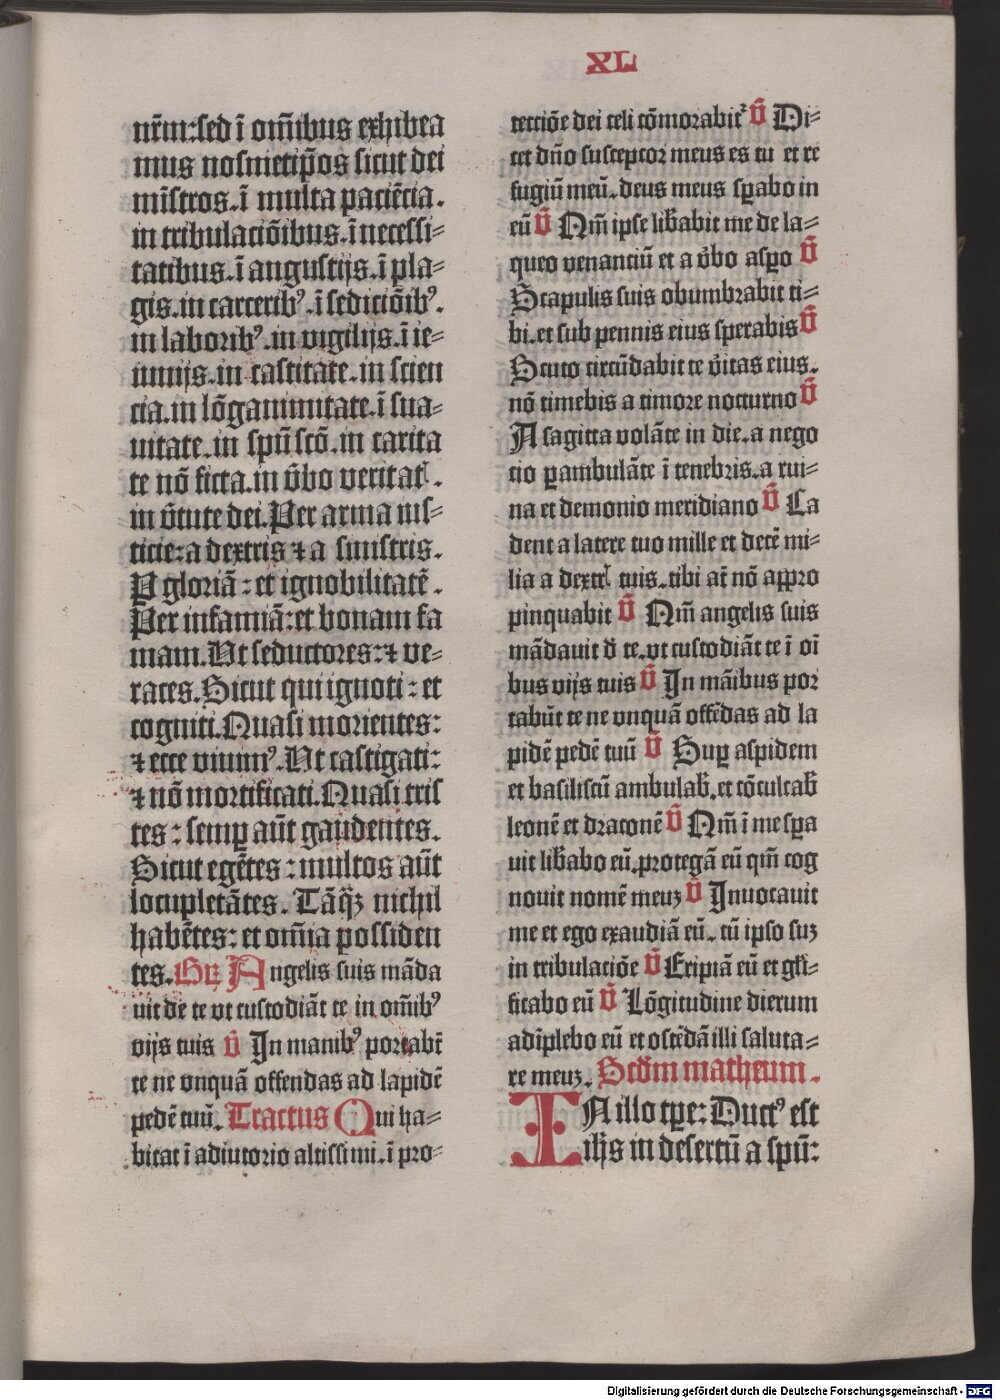 XL
nr̄m:sed ī om̄ibus exhibea
mus nosmetip̄os sicut dei
mīstros.ī multa paciēcia.
in tribulaciōibus.ī necessi=
tatibus.ī angustijs.ī pla=
gis.in carcerib⁹.ī sediciōib⁹.
in laborib⁹.in vigilijs.ī ie=
iunijs.in castitate.in scien
cia.in lōganimitate.ī sua=
uitate.in spū scō.in carita
te nō ficta.in v̄bo veritatꝭ.
in v̄tute dei.Per arma ius=
ticie:a dextris ⁊ a sinistris.
P̱ gloriā:et ignobilitatē.
Per infamiā:et bonam fa
mam.Vt seductores:⁊ ve=
races.Sicut qui ignoti:et
cogniti.Quasi morientes:
⁊ ecce viuim⁹.Vt castigati:
⁊ nō mortificati.Quasi tris
tes:semꝑ aūt gaudentes.
Sicut egētes:multos aūt
locupletātes.Tāq̄ꝫ nichil
habētes:et om̄ia possiden
tes.Gꝛ Angelis suis māda
uit de te vt custodiāt te in om̄ib⁹
vijs tuis v̄ In manib⁹ portabt̄
te ne vnquā offendas ad lapidē
pedē tuū.Tractus Qui ha=
bitat ī adiutorio altissimi.ī pro=
tectiōe dei celi cōmorabit᷑ v̄ Di=
cet dn̄o susceptor meus es tu et re
fugiū meū.deus meus sꝑabo in
eū v̄ Qm̄ ipse lib̄abit me de la=
queo venanciū et a v̄bo aspo v̄
Scapulis suis obumbrabit ti=
bi.et sub pennis eius sperabis v̄
Scuto circūdabit te v̄itas eius.
nō timebis a timore nocturno v̄
A sagitta volāte in die.a nego
cio ꝑambulāte ī tenebris.a rui=
na et demonio meridiano v̄ Ca
dent a latere tuo mille et decē mi=
lia a dextrꝭ tuis.tibi at̄ nō appro
pinquabit v̄ Qm̄ angelis suis
mādauit d̄ te.vt custodiāt te ī oī
bus vijs tuis v̄ In māibus por
tabūt te ne vnquā offēdas ad la
pidē pedē tuū v̄ Suꝑ aspidem
et basiliscū ambulab̄.et cōculcab̄
leonē et draconē v̄ Qm̄ ī me sꝑa
uit lib̄abo eū.protegā eū qm̄ cog
nouit nomē meuꝫ v̄ Inuocauit
me et ego exaudiā eū.cū ipso suꝫ
in tribulaciōe v̄ Eripiā eū et gl̄i=
ficabo eū v̄ Lōgitudine dierum
adīplebo eū et ostēdā illi saluta=
re meuꝫ. Scd̄m matheum.
IN illo tꝑe:Duct⁹ est
ih̄s in desertū a spū:
Digitalisierung gefördert durch die Deutsche Forschungsgemeinschaft - DFG